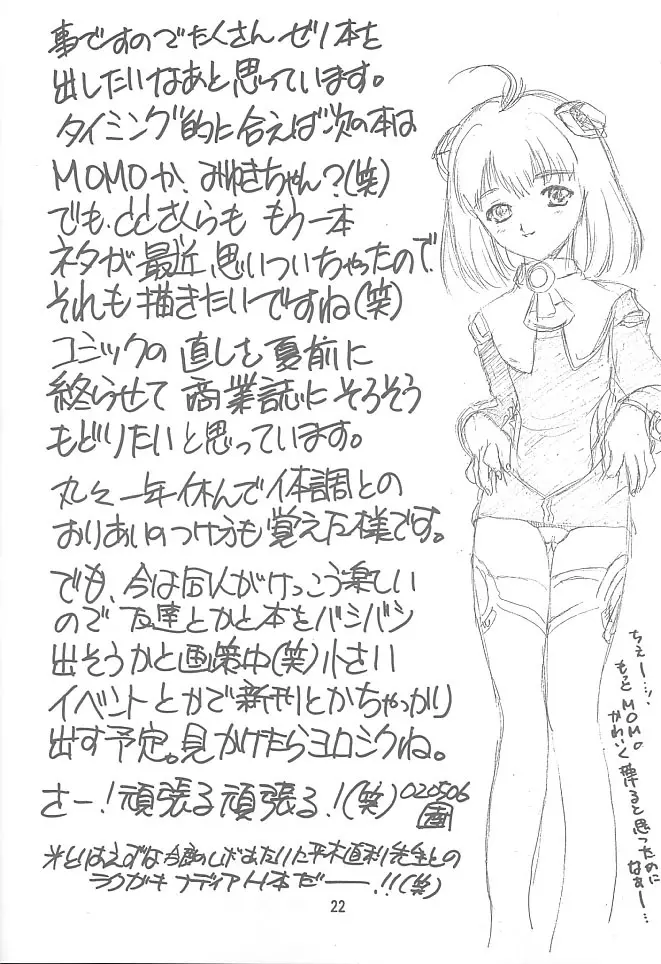 事ですのでたくさん ゼリ本を
出したいなあと思っています。
タイミング的に合えば次の本は
MOMOか、みゆきちゃん?(笑)
でも、ccさくらも もう一本
ネタが最近、思いついちゃったので、
それも描きたいですね(笑)
コミックの直しを夏前に
終らせて 商業誌にそろそろ
もどりたいと思っています。
丸々一年休んで体調との
おりあいのつけ方も覚えた様です。
でも、今は同人がけっこう楽しい
ので 友達とかと本をバシバシ
出そうかと画策中(笑)小さい
イベントとかで新刊とかちゃっかり
出す予定。見かけたらヨロシクね。
さー!頑張る頑張る!(笑)020506
画
※とりあえずな 今度の
平木直利先生との
ラクガキ ナディアH本だー!!(笑)
22
ちぇー…、
もっとMOMO
かわいく
描ると思ったのに
なぁー…